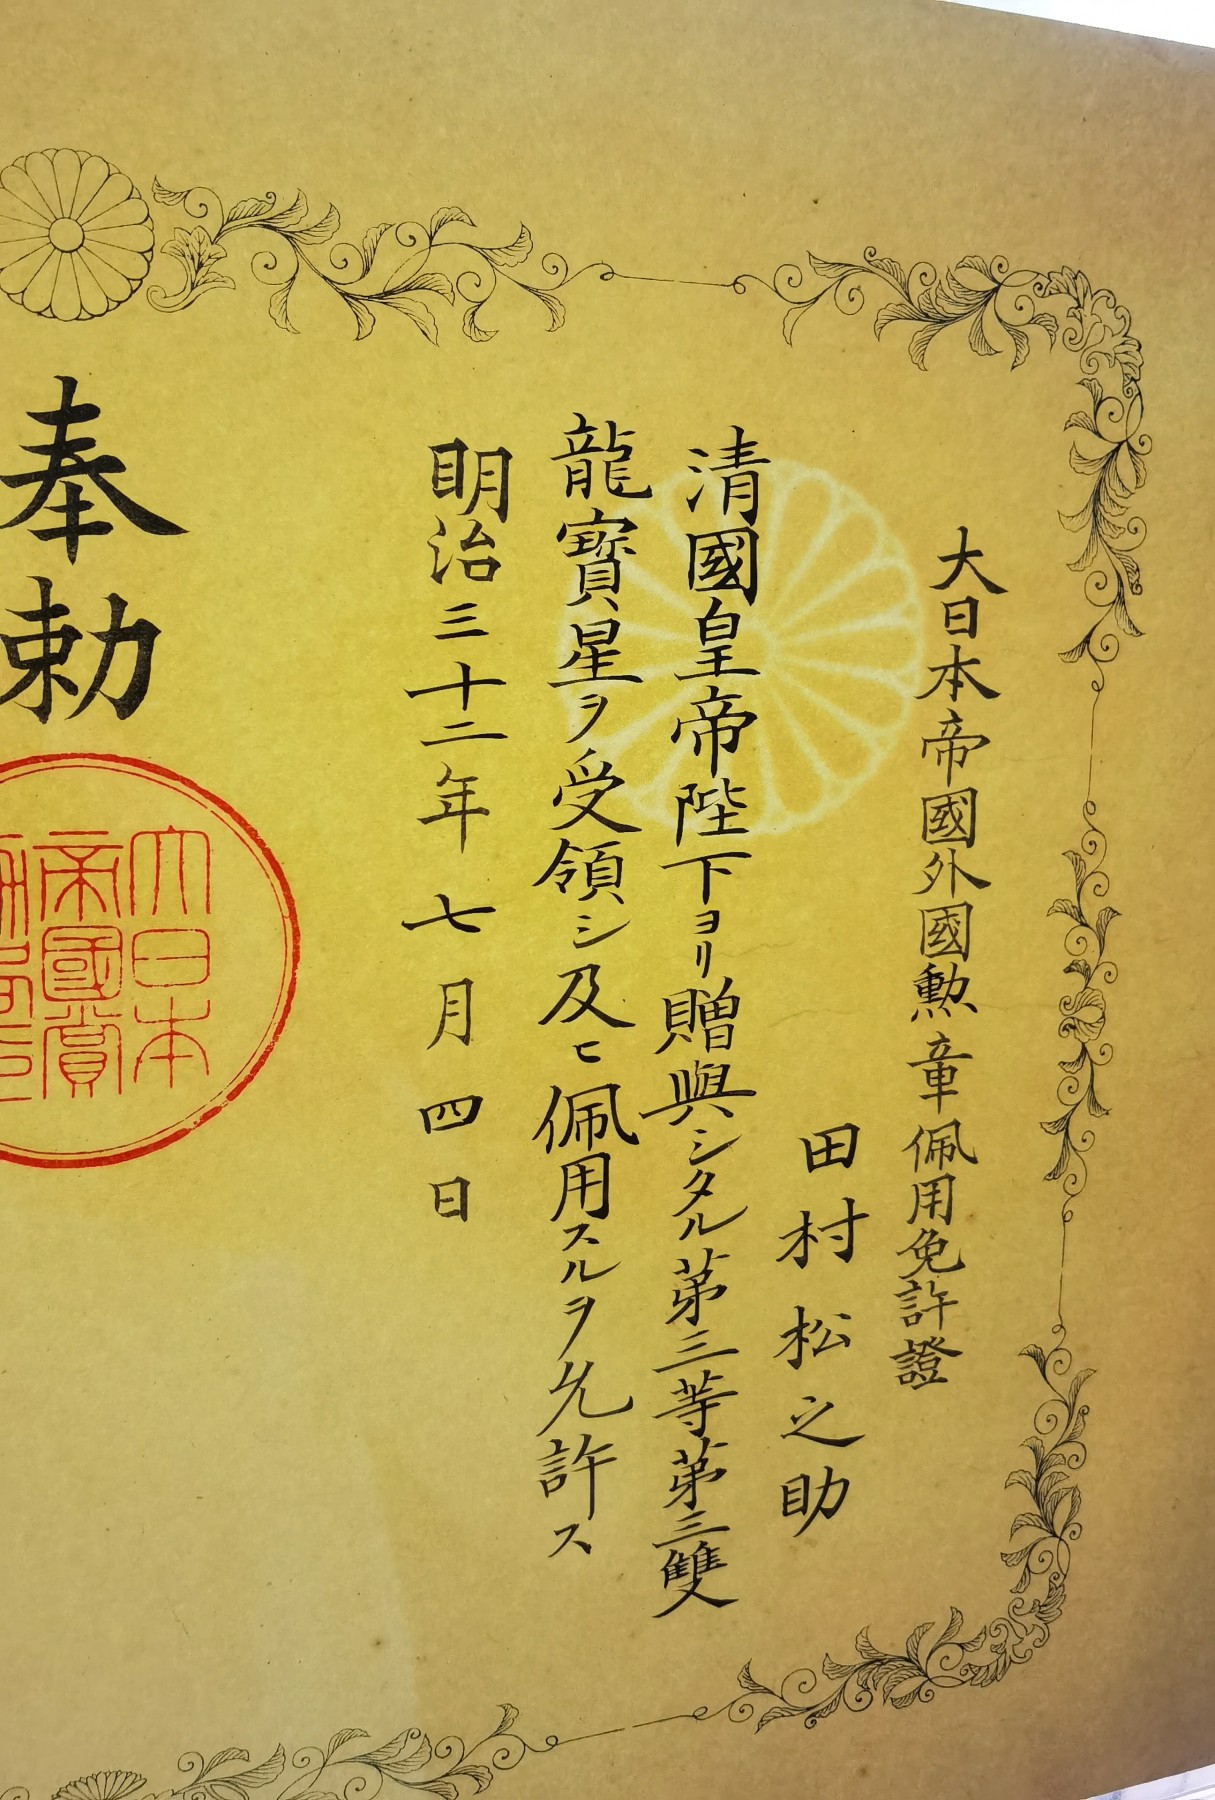 大日本帝國外國勲章佩用免許證
田村松之助
清國皇帝陛下ヨリ贈與シタル苐三等苐三雙
龍寶星ヲ受領シ及ヒ佩用スルヲ允許ス
明治三十二年七月四日
奉勅
大日本
帝國賞